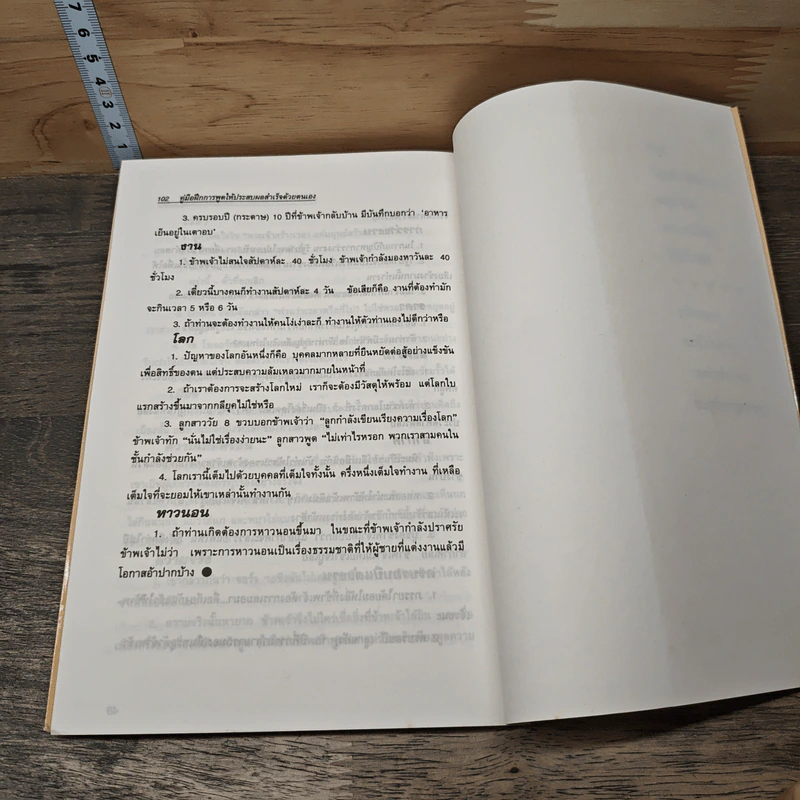 7
6
5
4
3
2
1
102 คู่มือฝึกการพูดให้ประสบผลสำเร็จด้วยตนเอง
3. ครบรอบปี (กระดาษ) 10 ปีที่ข้าพเจ้ากลับบ้าน มีบันทึกบอกว่า ‘อาหาร
เย็นอยู่ในเตาอบ’
งาน
1. ข้าพเจ้าไม่สนใจสัปดาห์ละ 40 ชั่วโมง ข้าพเจ้ากำลังมองหาวันละ 40
ชั่วโมง
2. เดี๋ยวนี้บางคนก็ทำงานสัปดาห์ละ 4 วัน ข้อเสียก็คือ งานที่ต้องทำมัก
จะกินเวลา 5 หรือ 6 วัน
3. ถ้าท่านจะต้องทำงานให้คนโง่เง่าละก็ ทำงานให้ตัวท่านเองไม่ดีกว่าหรือ
โลก
1. ปัญหาของโลกอันหนึ่งก็คือ บุคคลมากหลายที่ยืนหยัดต่อสู้อย่างแข็งขัน
เพื่อสิทธิ์ของตน แต่ประสบความล้มเหลวมากมายในหน้าที่
2. ถ้าเราต้องการจะสร้างโลกใหม่ เราก็จะต้องมีวัสดุให้พร้อม แต่โลกใบ
แรกสร้างขึ้นมาจากกลียุคไม่ใช่หรือ
3. ลูกสาววัย 8 ขวบบอกข้าพเจ้าว่า “ลูกกำลังเขียนเรียงความเรื่องโลก”
ข้าพเจ้าทัก “นั่นไม่ใช่เรื่องง่ายนะ” ลูกสาวพูด “ไม่เท่าไรหรอก พวกเราสามคนใน
ชั้นกำลังช่วยกัน”
4. โลกเรานี้เต็มไปด้วยบุคคลที่เต็มใจทั้งนั้น ครึ่งหนึ่งเต็มใจทำงาน ที่เหลือ
เต็มใจที่จะยอมให้เขาเหล่านั้นทำงานกัน
หาวนอน
1. ถ้าท่านเกิดต้องการหาวนอนขึ้นมา ในขณะที่ข้าพเจ้ากำลังปราศรัย
ข้าพเจ้าไม่ว่า เพราะการหาวนอนเป็นเรื่องธรรมชาติที่ให้ผู้ชายที่แต่งงานแล้วมี
โอกาสอ้าปากบ้าง ●